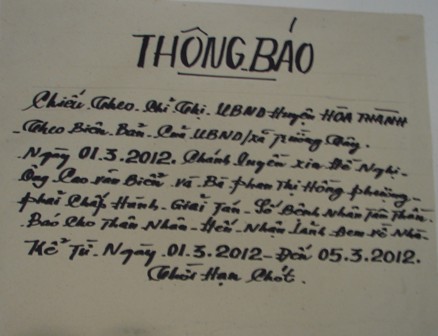 THÔNG BÁO
Chiếu Theo Chỉ Thị UBND Huyện HÒA THÀNH
Theo Biên Bản Của UBND/xã Trường Tây.
Ngày 01.3.2012. Chánh Quyền xin Đề Nghị
Ông Cao văn Biển và Bà Phan Thị Hồng Phượng
Phải Chấp Hành Giải Tán Số Bệnh Nhân Tâm Thần.
Báo Cho Thân Nhân Đến Nhận Lãnh Đem về Nhà
Kể Từ Ngày 01.3.2012 Đến 05.3.2012.
Thời Hạn Chót.